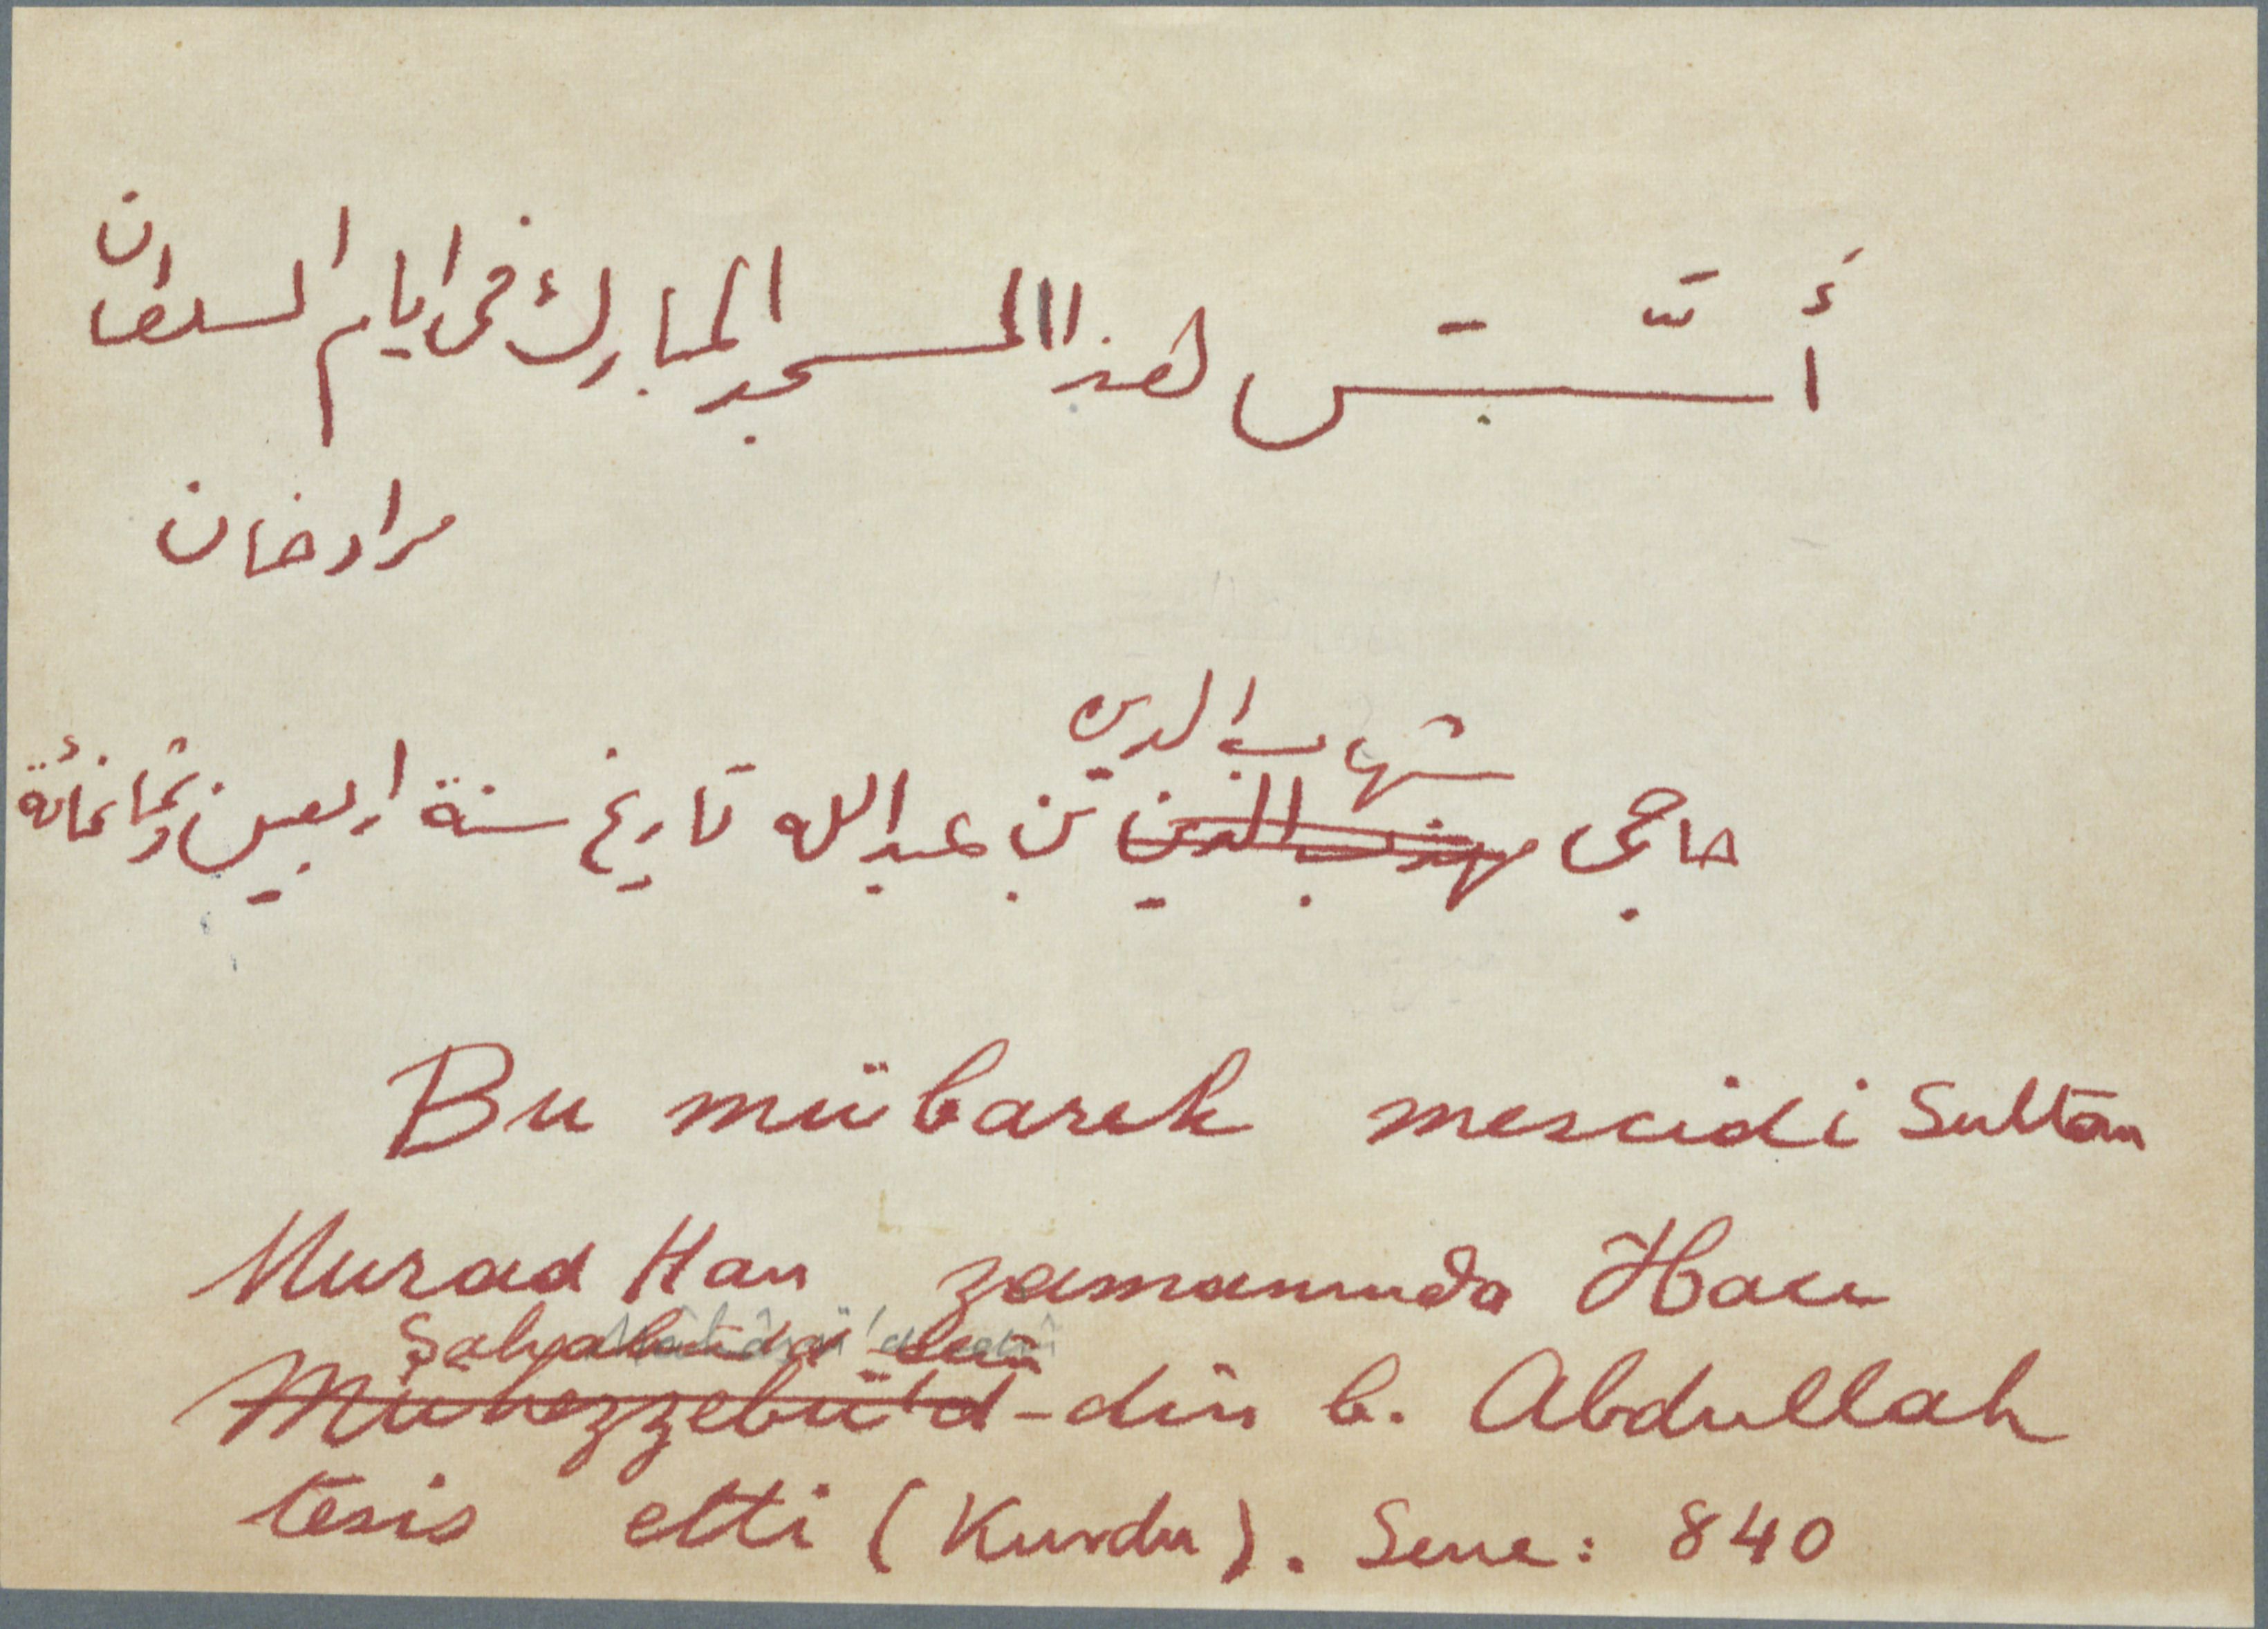 أَسَّسَ هذا المسجد المبارك فى ايام السلطان
مراد خان
شهاب الدين
حاجى مهذب الدين بن عبدالله تاريخ سنة اربعين وثمانمائة
Bu mübarek mescidi Sultan
Murad Han zamanında Hacı
Mühezzebü'd-din b. Abdullah
tesis etti (Kurdu). Sene: 840